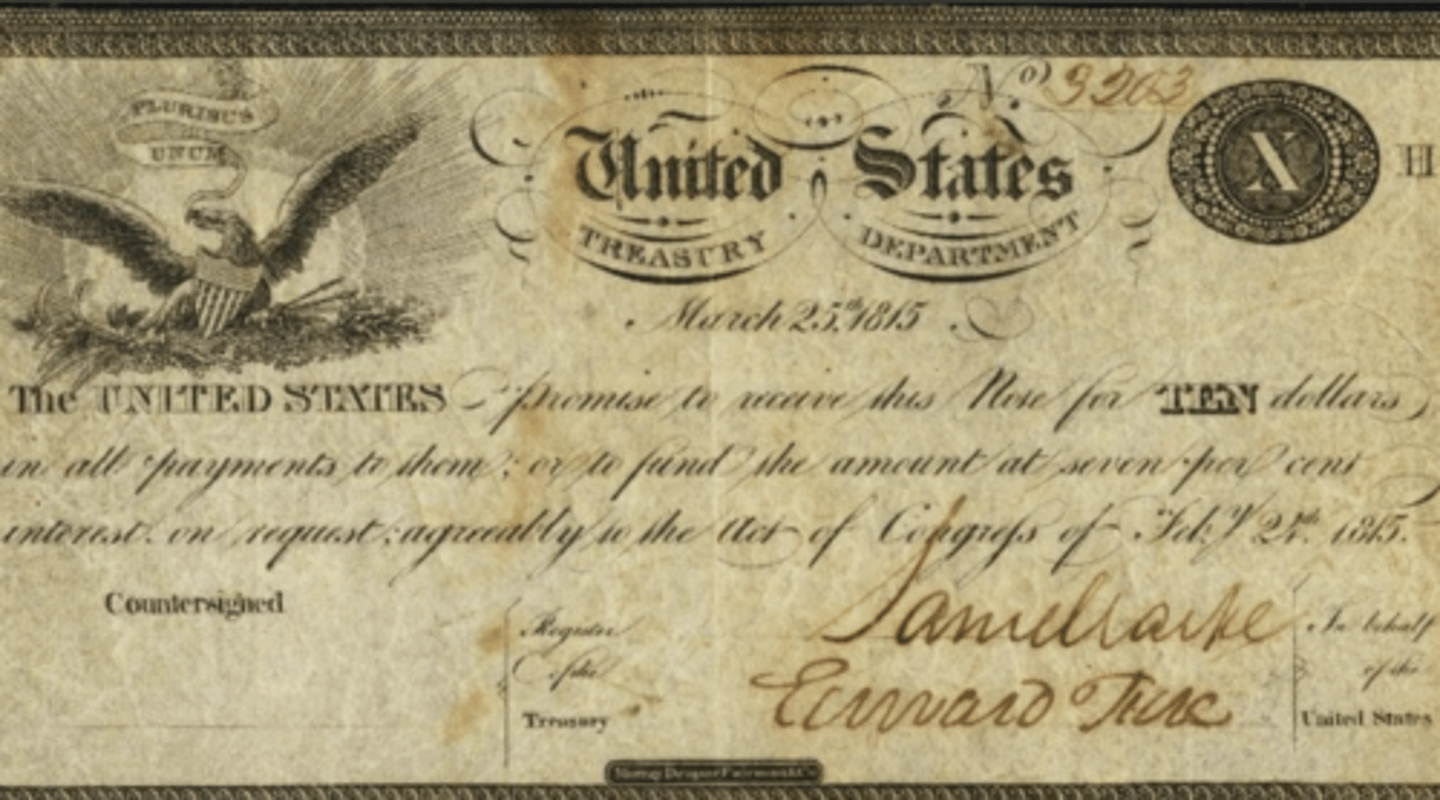 PLURIBUS
UNUM
No. 3203
X
H
United States
TREASURY DEPARTMENT
March 25th. 1815
The UNITED STATES promise to receive this Note for TEN dollars,
in all payments to them; or to fund the amount at seven per cent
interest, on request; agreeably to the Act of Congress of Feby. 24th. 1815.
Countersigned
Register
of the
Treasury
Saml Clarke
Edward Fox
In behalf
of the
United States
Murray Draper Fairman & Co